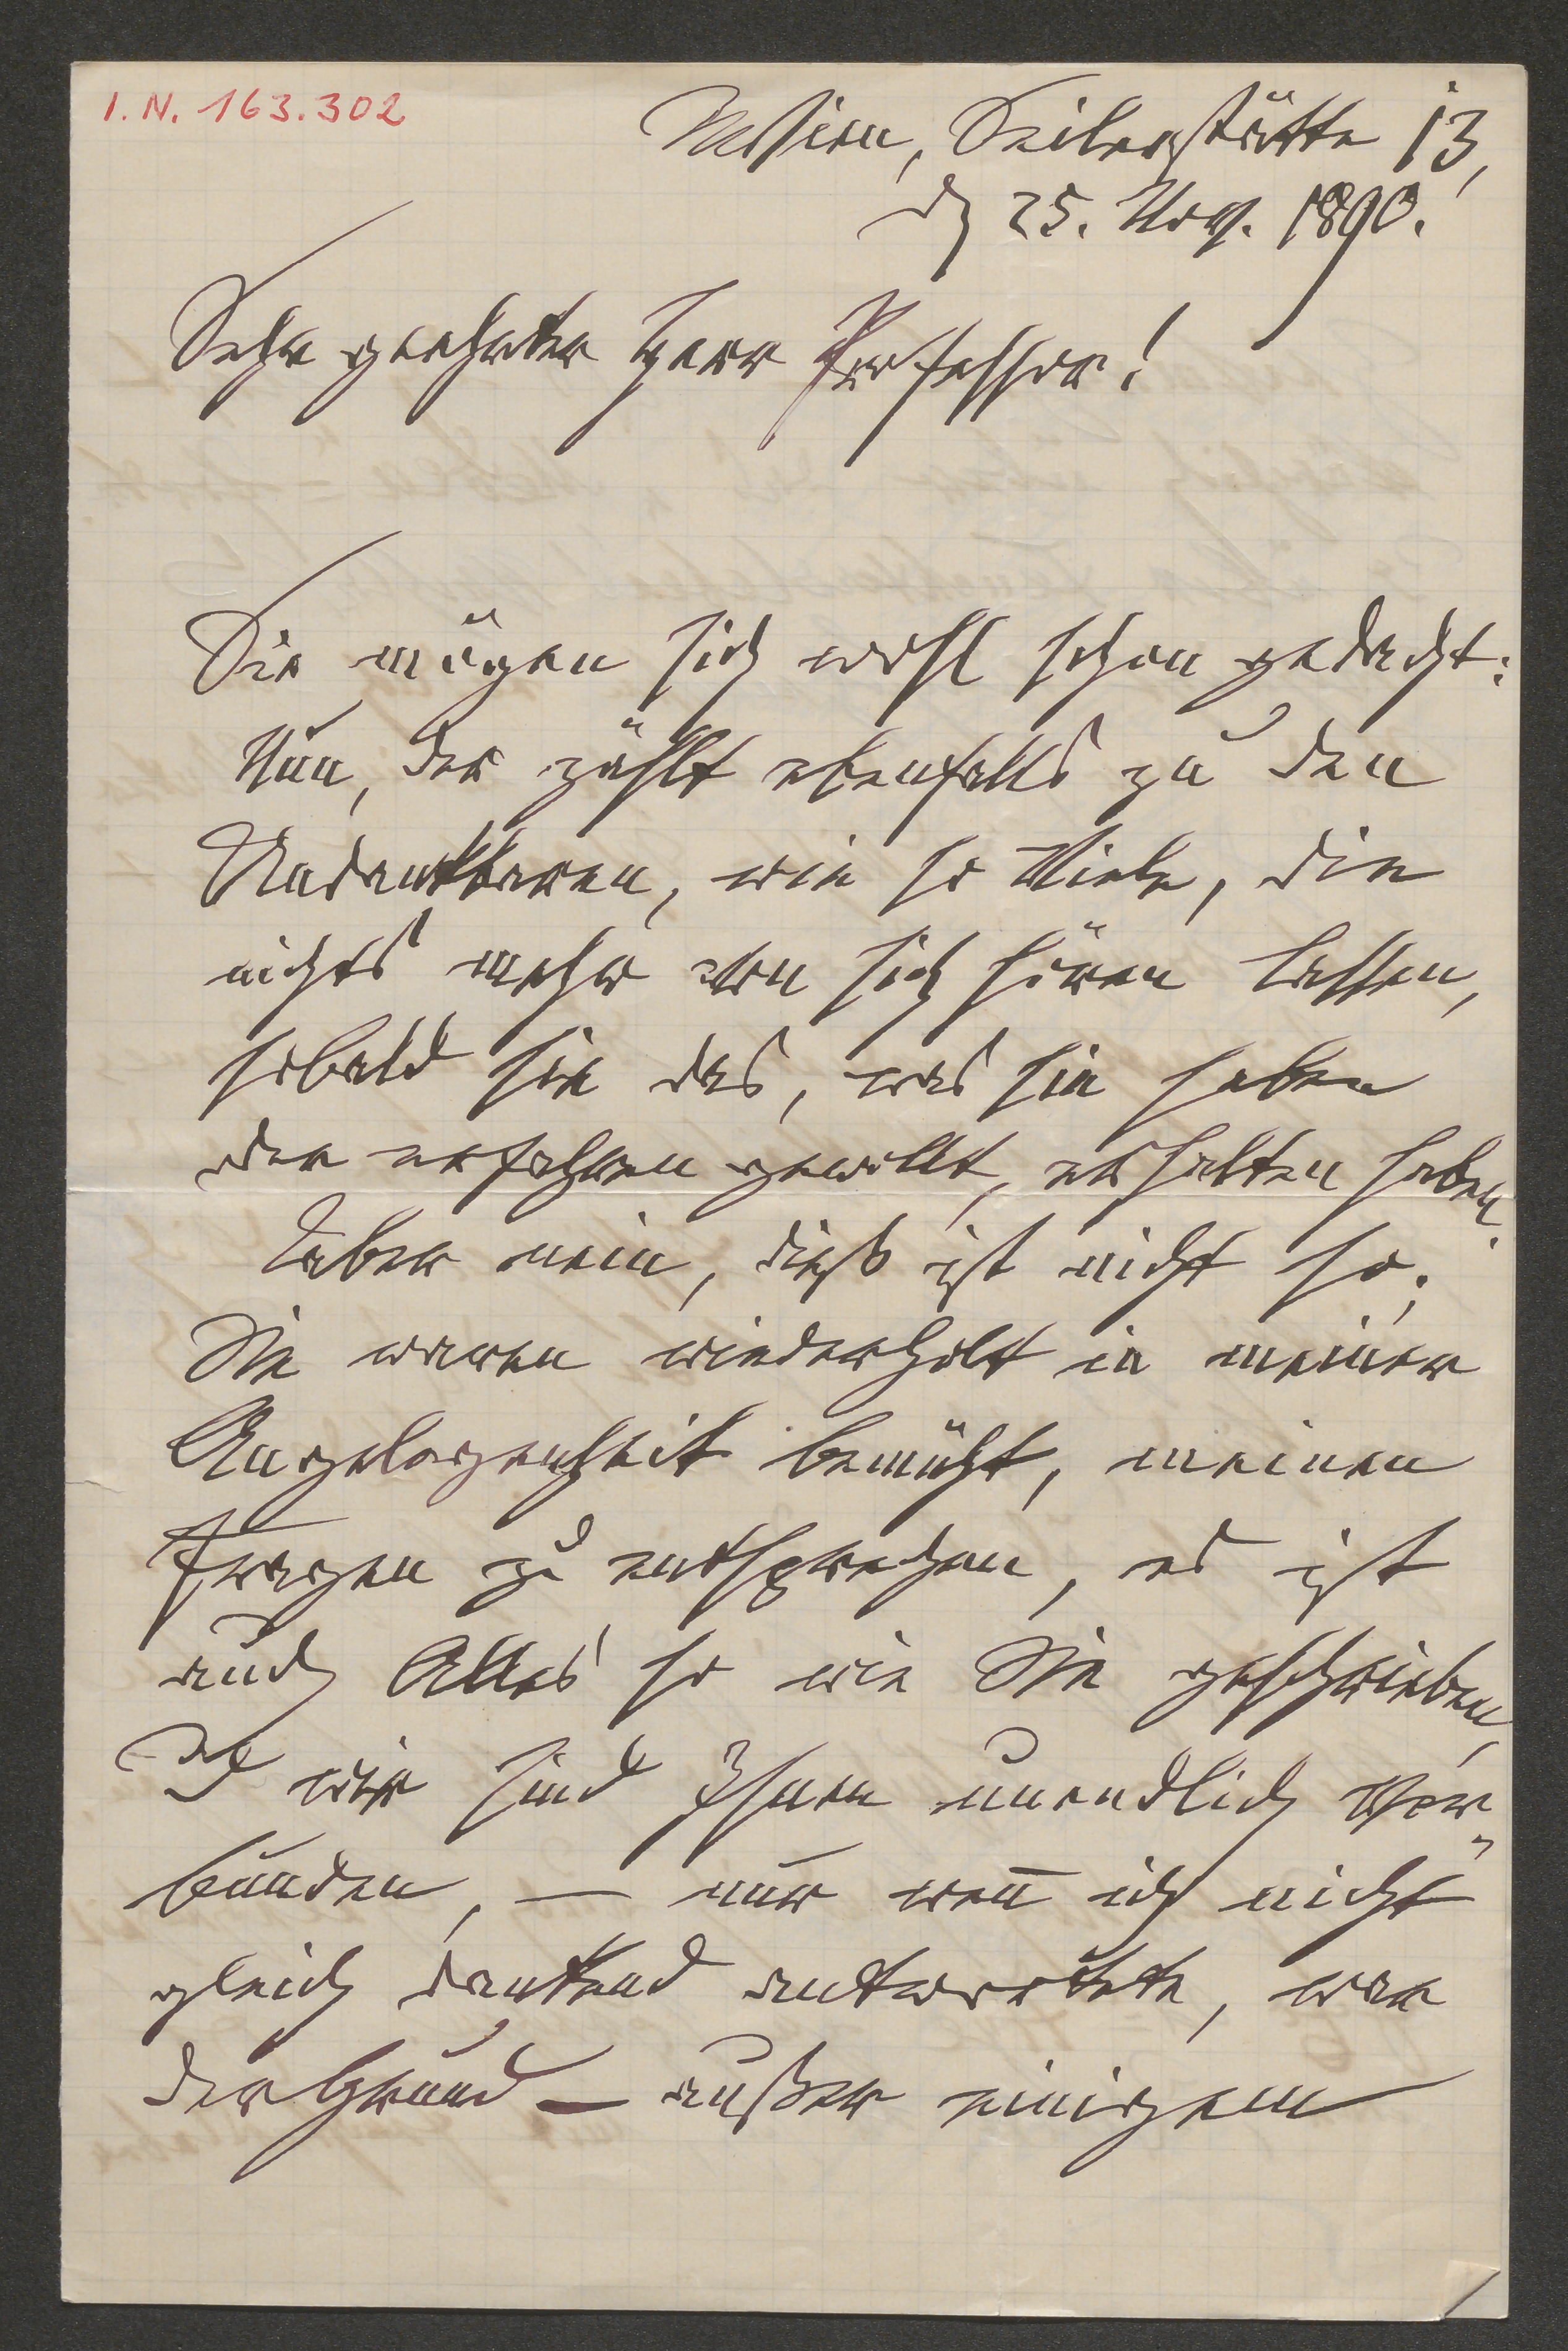 I. N. 163.302
Wien, Seilerstätte 13,
d 25. Nov. 1890.
Sehr geehrter Herr Professor!
Sie mögen sich wohl schon gedacht:
Nun, der zählt ebenfalls zu den
Undankbaren, wie so Viele, die
nichts mehr von sich hören lassen,
sobald sie das, was sie haben
oder erfahren gewollt, erhalten haben.
Aber nein, dieß ist nicht so;
Sie waren wiederholt in meiner
Angelegenheit bemüht, meinen
Fragen zu entsprechen, es ist
auch Alles so wie Sie geschrieben,
& wir sind Ihnen unendlich ver-
bunden, — nur wen̅ ich nicht
gleich dankend antwortete, war
der Grund — außer einigem